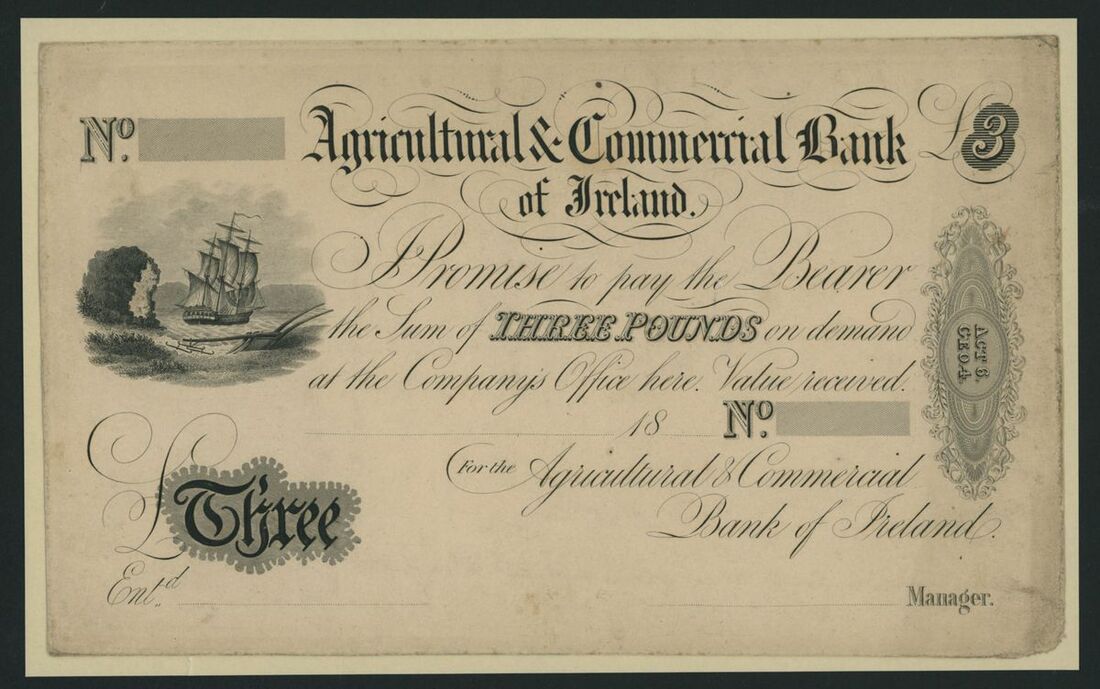 No.
Agricultural & Commercial Bank
of Ireland.
£3
I Promise to pay the Bearer
the Sum of THREE POUNDS on demand
at the Company's Office here. Value received.
18 No.
For the Agricultural & Commercial
Bank of Ireland.
£ Three
Entd.
Manager.
ACT 6.
GEO 4.